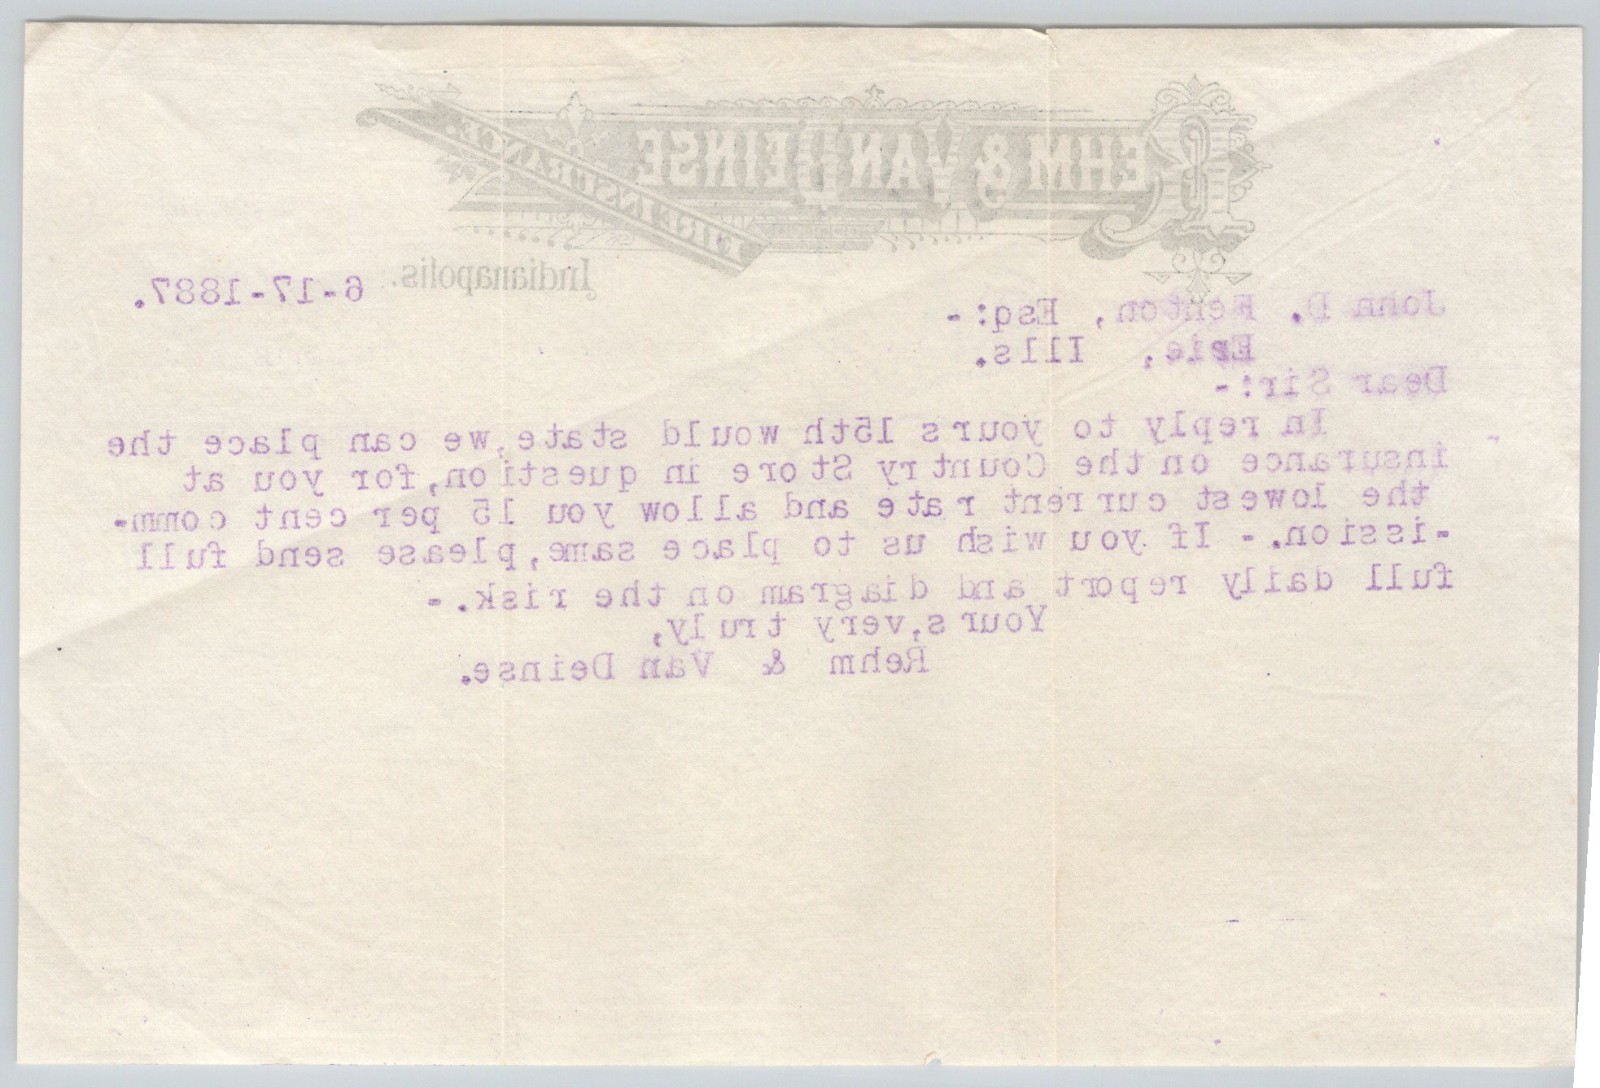 REHM & VAN DEINSE
FIRE INSURANCE.
Indianapolis. 6-17-1887.
John D. Fenton, Esq:-
Erie, Ills.
Dear Sir:-
In reply to yours 15th would state,we can place the
insurance on the Country Store in question,for you at
the lowest current rate and allow you 15 per cent comm-
-ission.- If you wish us to place same,please send full
full daily report and diagram on the risk.-
Yours,very truly,
Rehm & Van Deinse.